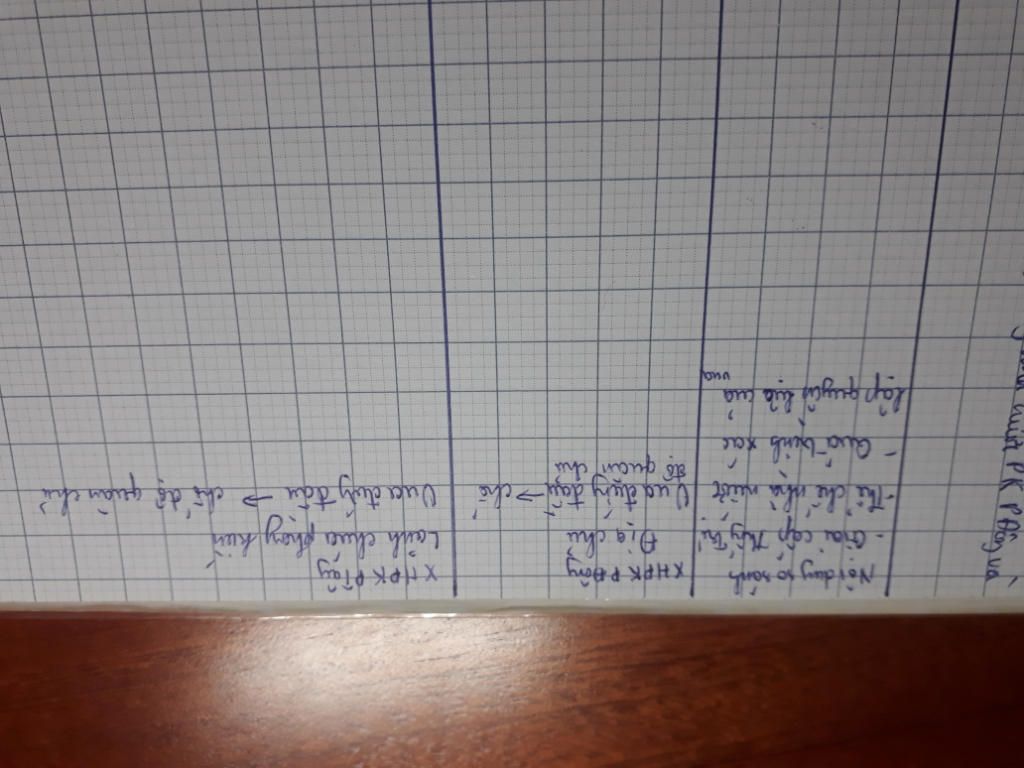 PK PĐông và
Nội dung so sánh
- Giai cấp thống trị
- Thể chế nhà nước
- Quá trình xác
lập quyền lực của
vua
XHPK PĐông
Địa chủ
Vua đứng đầu, → chế
độ quân chủ
XHPK PTây
Lãnh chúa phong kiến
Vua đứng đầu → chế độ quân chủ